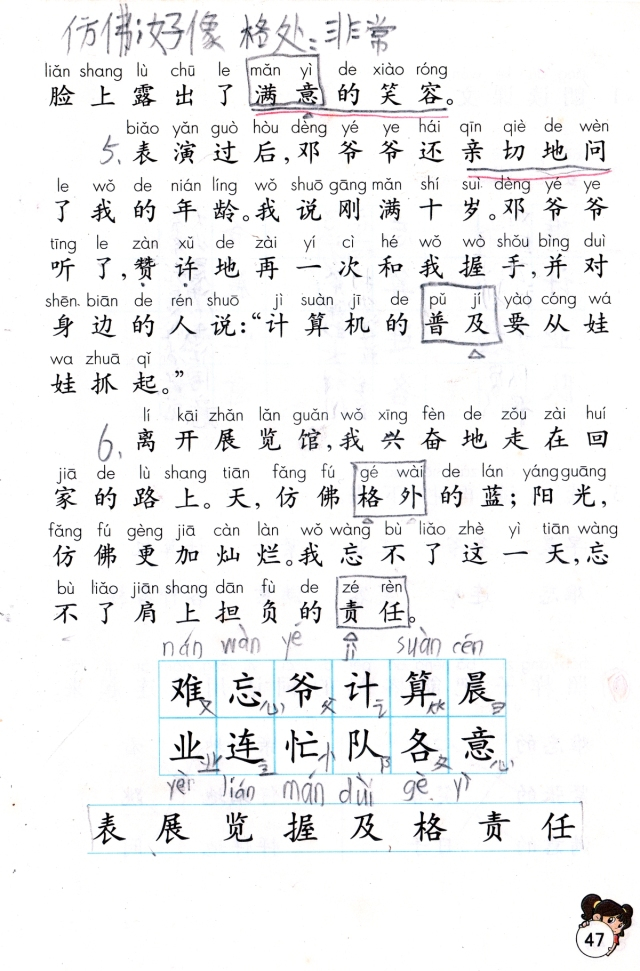 仿佛:好像 格处:非常
liǎn shang lù chū le mǎn yì de xiào róng
脸上露出了满意的笑容。
biǎo yǎn guò hòu dèng yé ye hái qīn qiè de wèn
5. 表演过后,邓爷爷还亲切地问
le wǒ de nián líng wǒ shuō gāng mǎn shí suì dèng yé ye
了我的年龄。我说刚满十岁。邓爷爷
tīng le zàn xǔ de zài yí cì hé wǒ wò shǒu bìng duì
听了,赞许地再一次和我握手,并对
shēn biān de rén shuō jì suàn jī de pǔ jí yào cóng wá
身边的人说:“计算机的普及要从娃
wa zhuā qǐ
娃抓起。”
lí kāi zhǎn lǎn guǎn wǒ xīng fèn de zǒu zài huí
6. 离开展览馆,我兴奋地走在回
jiā de lù shang tiān fǎng fú gé wài de lán yáng guāng
家的路上。天,仿佛格外的蓝;阳光,
fǎng fú gèng jiā càn làn wǒ wàng bù liǎo zhè yì tiān wàng
仿佛更加灿烂。我忘不了这一天,忘
bù liǎo jiān shang dān fù de zé rèn
不了肩上担负的责任。
nán wàn yé suàn cén
难忘爷计算晨
又 心 父 讠 竹 日
业连忙队各意
业 车 忄 阝 夂 心
yèn lián mán dùi gè yì
表展览握及格责任
47